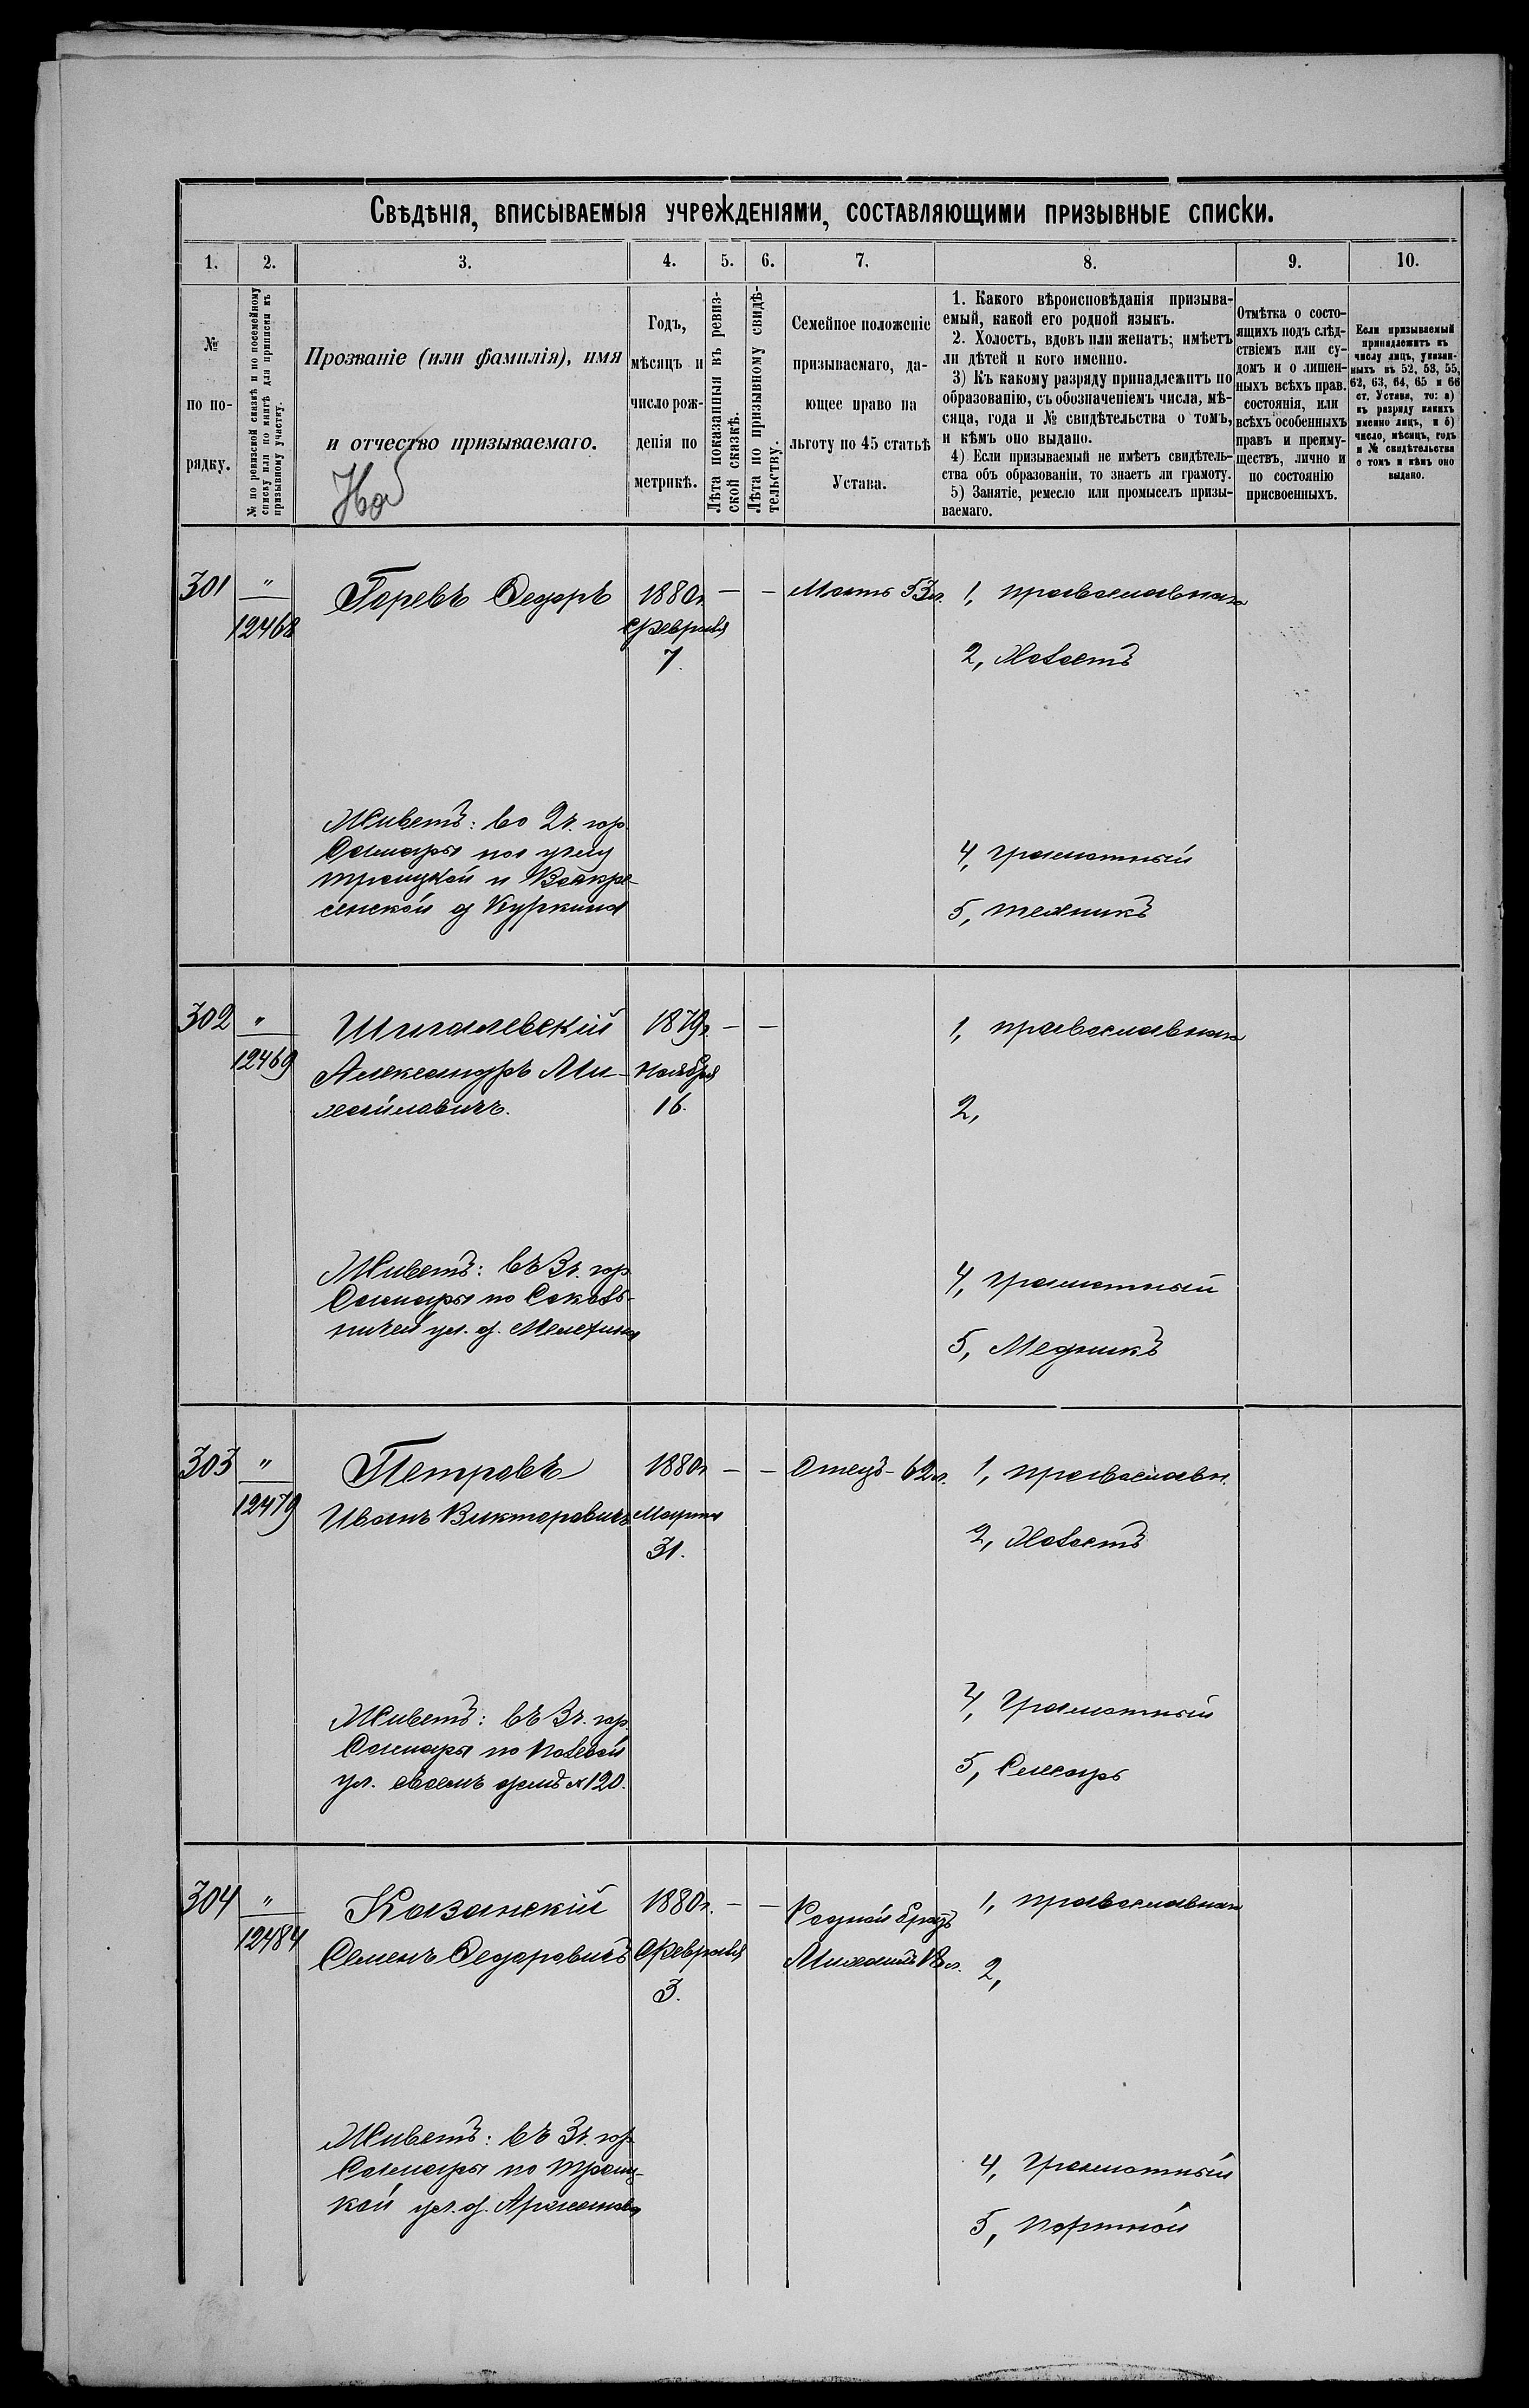 Свѣдѣнія, вписываемыя учрежденіями, составляющими призывные списки.
1. 2. 3. 4. 5. 6. 7. 8. 9. 10.
№
по по-
рядку.
№ по ревизской сказкѣ и по посемейному
списку или по книгѣ для приписки къ
призывному участку.
Прозваніе (или фамилія), имя
и отчество призываемаго.
Годъ,
мѣсяцъ и
число рож-
денія по
метрикѣ.
Лѣта показанныя въ ревиз-
ской сказкѣ.
Лѣта по призывному свидѣ-
тельству.
Семейное положеніе
призываемаго, да-
ющее право на
льготу по 45 статьѣ
Устава.
1. Какого вѣроисповѣданія призыва-
емый, какой его родной языкъ.
2. Холостъ, вдовъ или женатъ; имѣетъ
ли дѣтей и кого именно.
3) Къ какому разряду принадлежитъ по
образованію, съ обозначеніемъ числа, мѣ-
сяца, года и № свидѣтельства о томъ,
и кѣмъ оно выдано.
4) Если призываемый не имѣетъ свидѣтель-
ства объ образованіи, то знаетъ ли грамоту.
5) Занятіе, ремесло или промыселъ призы-
ваемаго.
Отмѣтка о состо-
ящихъ подъ слѣд-
ствіемъ или су-
домъ и о лишен-
ныхъ всѣхъ прав.
состоянія, или
всѣхъ особенныхъ
правъ и преиму-
ществъ, лично и
по состоянію
присвоенныхъ.
Если призываемый
принадлежитъ къ
числу лицъ, указан-
ныхъ въ 52, 53, 55,
62, 63, 64, 65 и 66
ст. Устава, то: а)
къ разряду какихъ
именно лицъ, и б)
число, мѣсяцъ, годъ
и № свидѣтельства
о томъ и кѣмъ оно
выдано.
301 " Горевъ Федоръ 1880г. — — Мать 53л. 1, православная
12468 Февраля
7. 2, Холостъ
Живетъ: во 2ч. гор.
Самары на углу
Троицкой и Воскре-
сенской д Куркина
4, грамотный
5, медникъ
302 " Шигалевскій 1879г. — — 1, православная
12469 Александръ Ми- Ноября
хайловичъ. 16. 2,
Живетъ: въ 3ч. гор
Самары по Соколь-
ничей ул. д.
4, грамотный
5, Медникъ
303 " Петровъ 1880г — — Отецъ - 62л. 1, православн.
12479 Иванъ Викторовичъ Марта
31. 2, Холостъ
Живетъ: въ 3ч. гор.
Самары по Полевой
ул. своемъ домѣ № 120.
4, Грамотный
5, Слесарь
304 " Казанскій 1880г. — — Родной братъ 1, православная
12484 Семенъ Федоровичъ Февраля Михаилъ 18л. 2,
3.
Живетъ: въ 3ч. гор
Самары по Троиц-
кой ул. д. Аржанова
4, Грамотный
5, портной